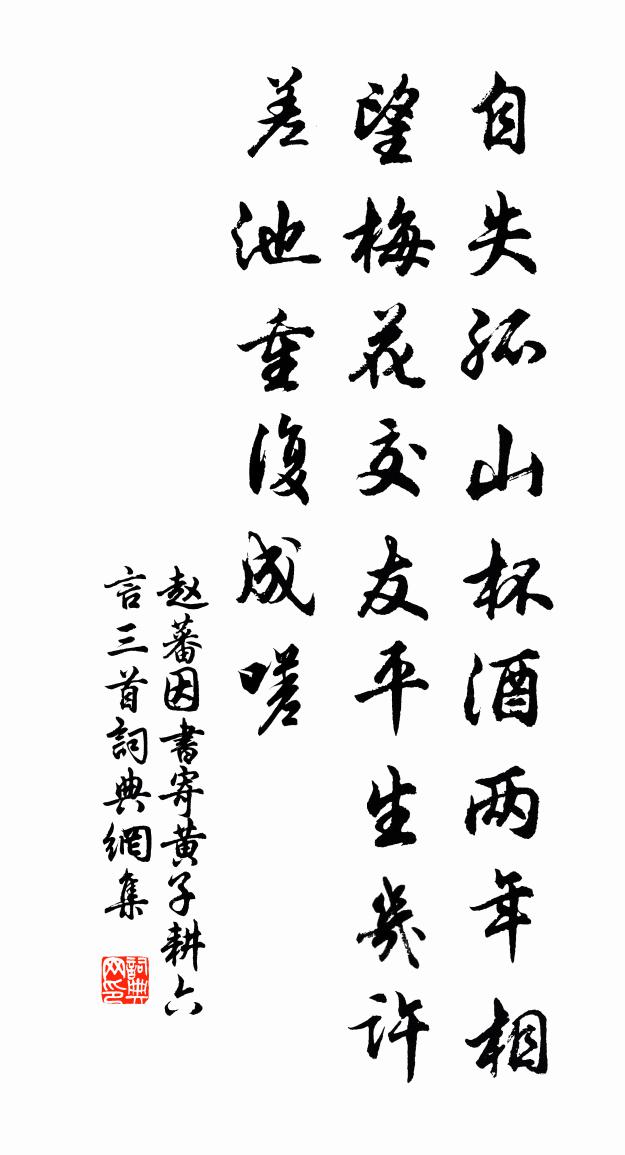 自失孤山杯酒两年相
望梅花交友平生几许
差池重复成嗟
赵蕃因书寄黄子耕六
言三首詞典網集
詞典
网印